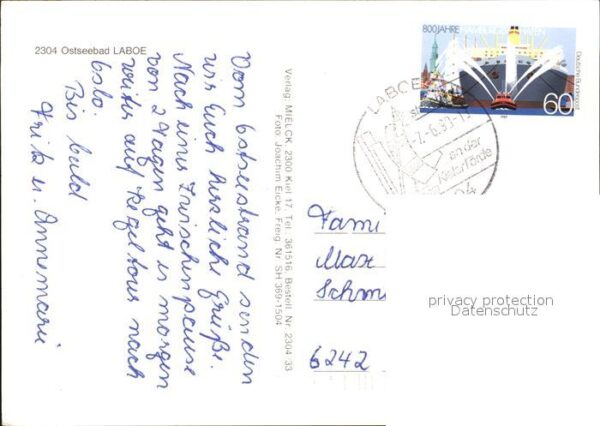 2304 Ostseebad LABOE
Vom Ostseestrand senden
wir Euch herzliche Grüße.
Nach einer Zwischenpause
von 2 Tagen geht es morgen
weiter auf Kegeltour nach
Oslo
Bis bald
Fritz u. Annemarie
Verlag: MIELCK, 2300 Kiel 17, Tel. 361516, Bestell. Nr. 2304 33
Foto: Joachim Eicke, Freig. Nr. SH 369-1504
800 JAHRE HAMBURGER HAFEN
Deutsche Bundespost
60
LABOE
an der
Kieler Förde
Fami
Max
Schm
6242
privacy protection
Datenschutz